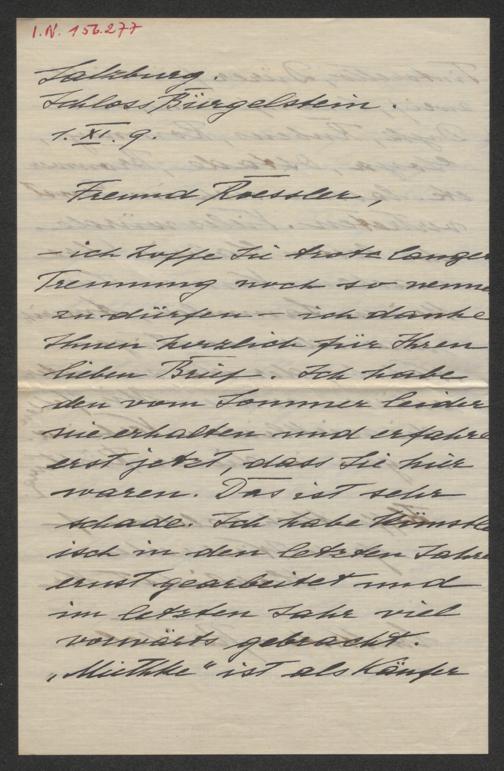 I.N. 156.277
Salzburg.
Schloss Bürgelstein.
1. XI. 9.
Freund Roessler,
– ich hoffe Sie trotz langer
Trennung noch so nenne
zu dürfen – ich danke
Ihnen herzlich für Ihren
lieben Brief. Ich habe
den vom Sommer leider
nie erhalten und erfahre
erst jetzt, dass Sie hier
waren. Das ist sehr
schade. Ich habe künstle
isch in den letzten Jahre
ernst gearbeitet und
im letzten Jahr viel
vorwärts gebracht.
„Miethke" ist als Käufer